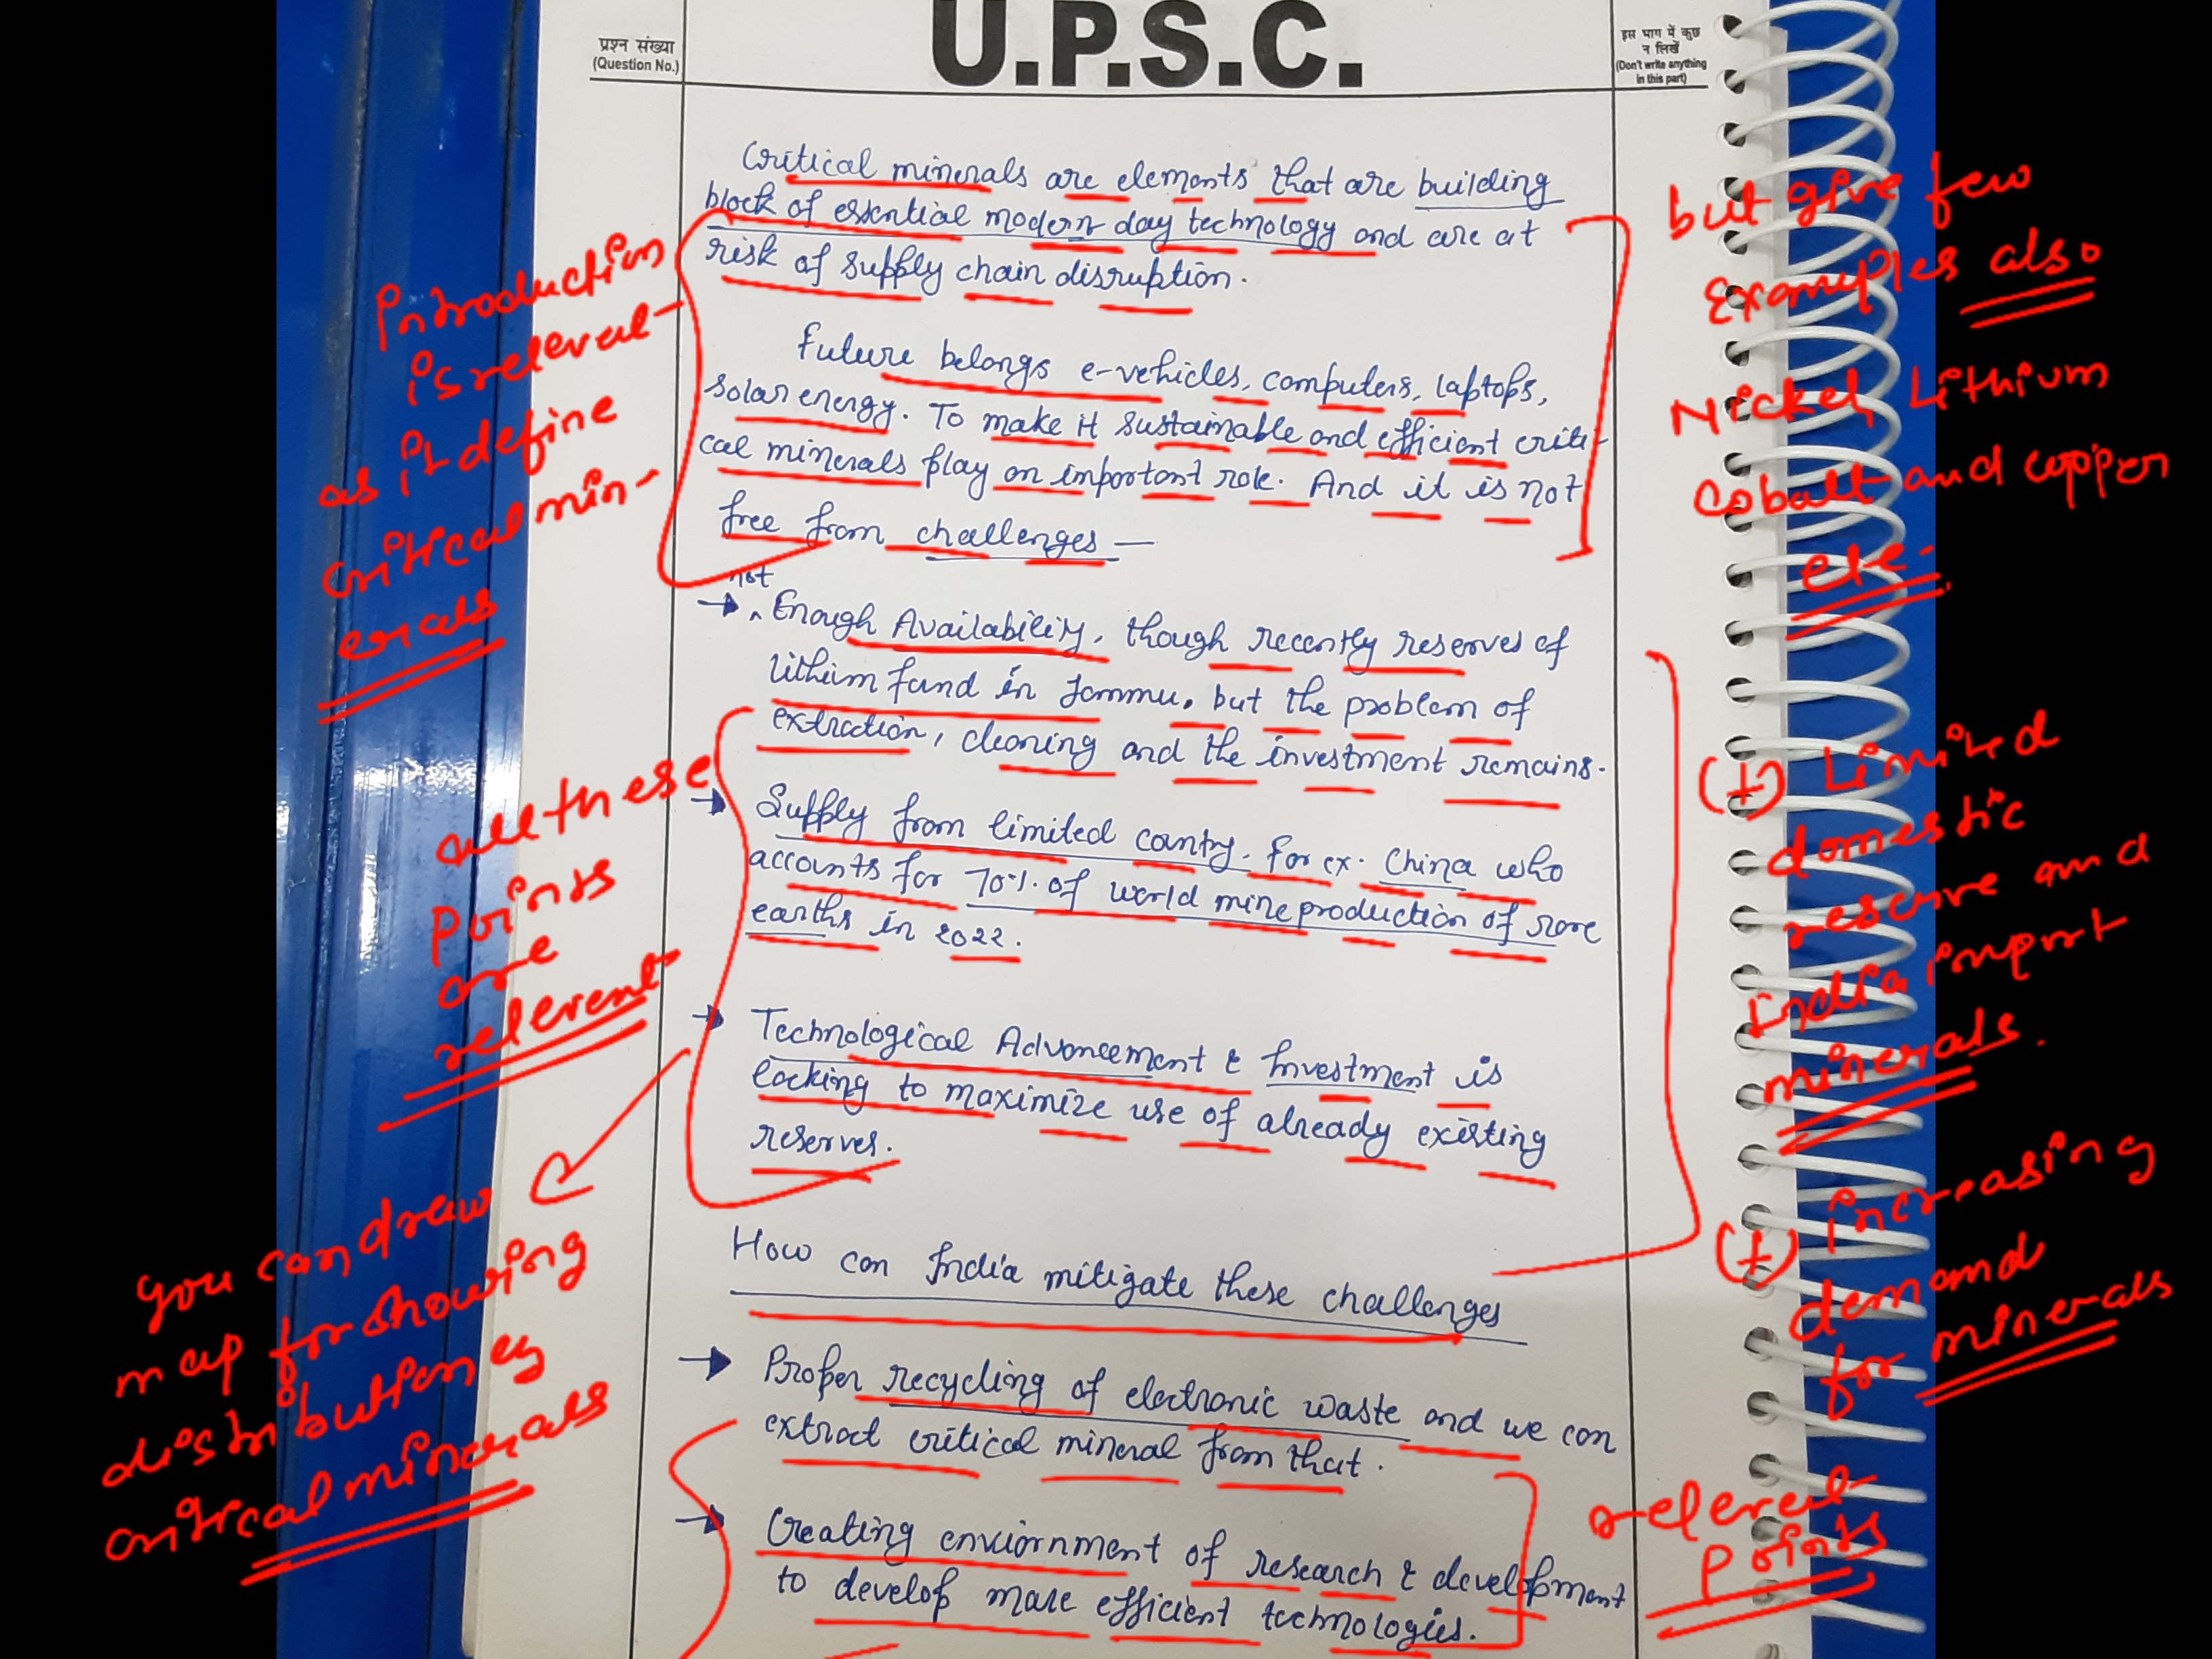 प्रश्न संख्या
(Question No.)
U.P.S.C.
इस भाग में कुछ
न लिखें
(Don't write anything
in this part)
Critical minerals are elements that are building
block of essential modern day technology and are at
risk of supply chain disruption.
Future belongs e-vehicles, computers, laptops,
solar energy. To make it sustainable and efficient criti-
cal minerals play an important role. And it is not
free from challenges —
not
→ ^ Enough Availability, though recently reserves of
lithium fund in Jammu. but the problem of
extraction, cleaning and the investment remains.
→ Supply from limited country. For ex. China who
accounts for 70%. of world mine production of rare
earths in 2022.
→ Technological Advancement & Investment is
lacking to maximize use of already existing
reserves.
How can India mitigate these challenges
→ Proper recycling of electronic waste and we can
extract critical mineral from that.
→ Creating enviornment of research & development
to develop more efficient technologies.
Introduction
is releval-
as it define
critical min-
erals
all these
points
are
relevent
you can draw
map for showing
distribution of
critical minerals
but give few
Examples also
Nickel, Lithium
Cobalt and copper
etc.
(+) Limited
domestic
reserve and
India import
minerals.
(+) increasing
demand
for minerals
relevel-
points